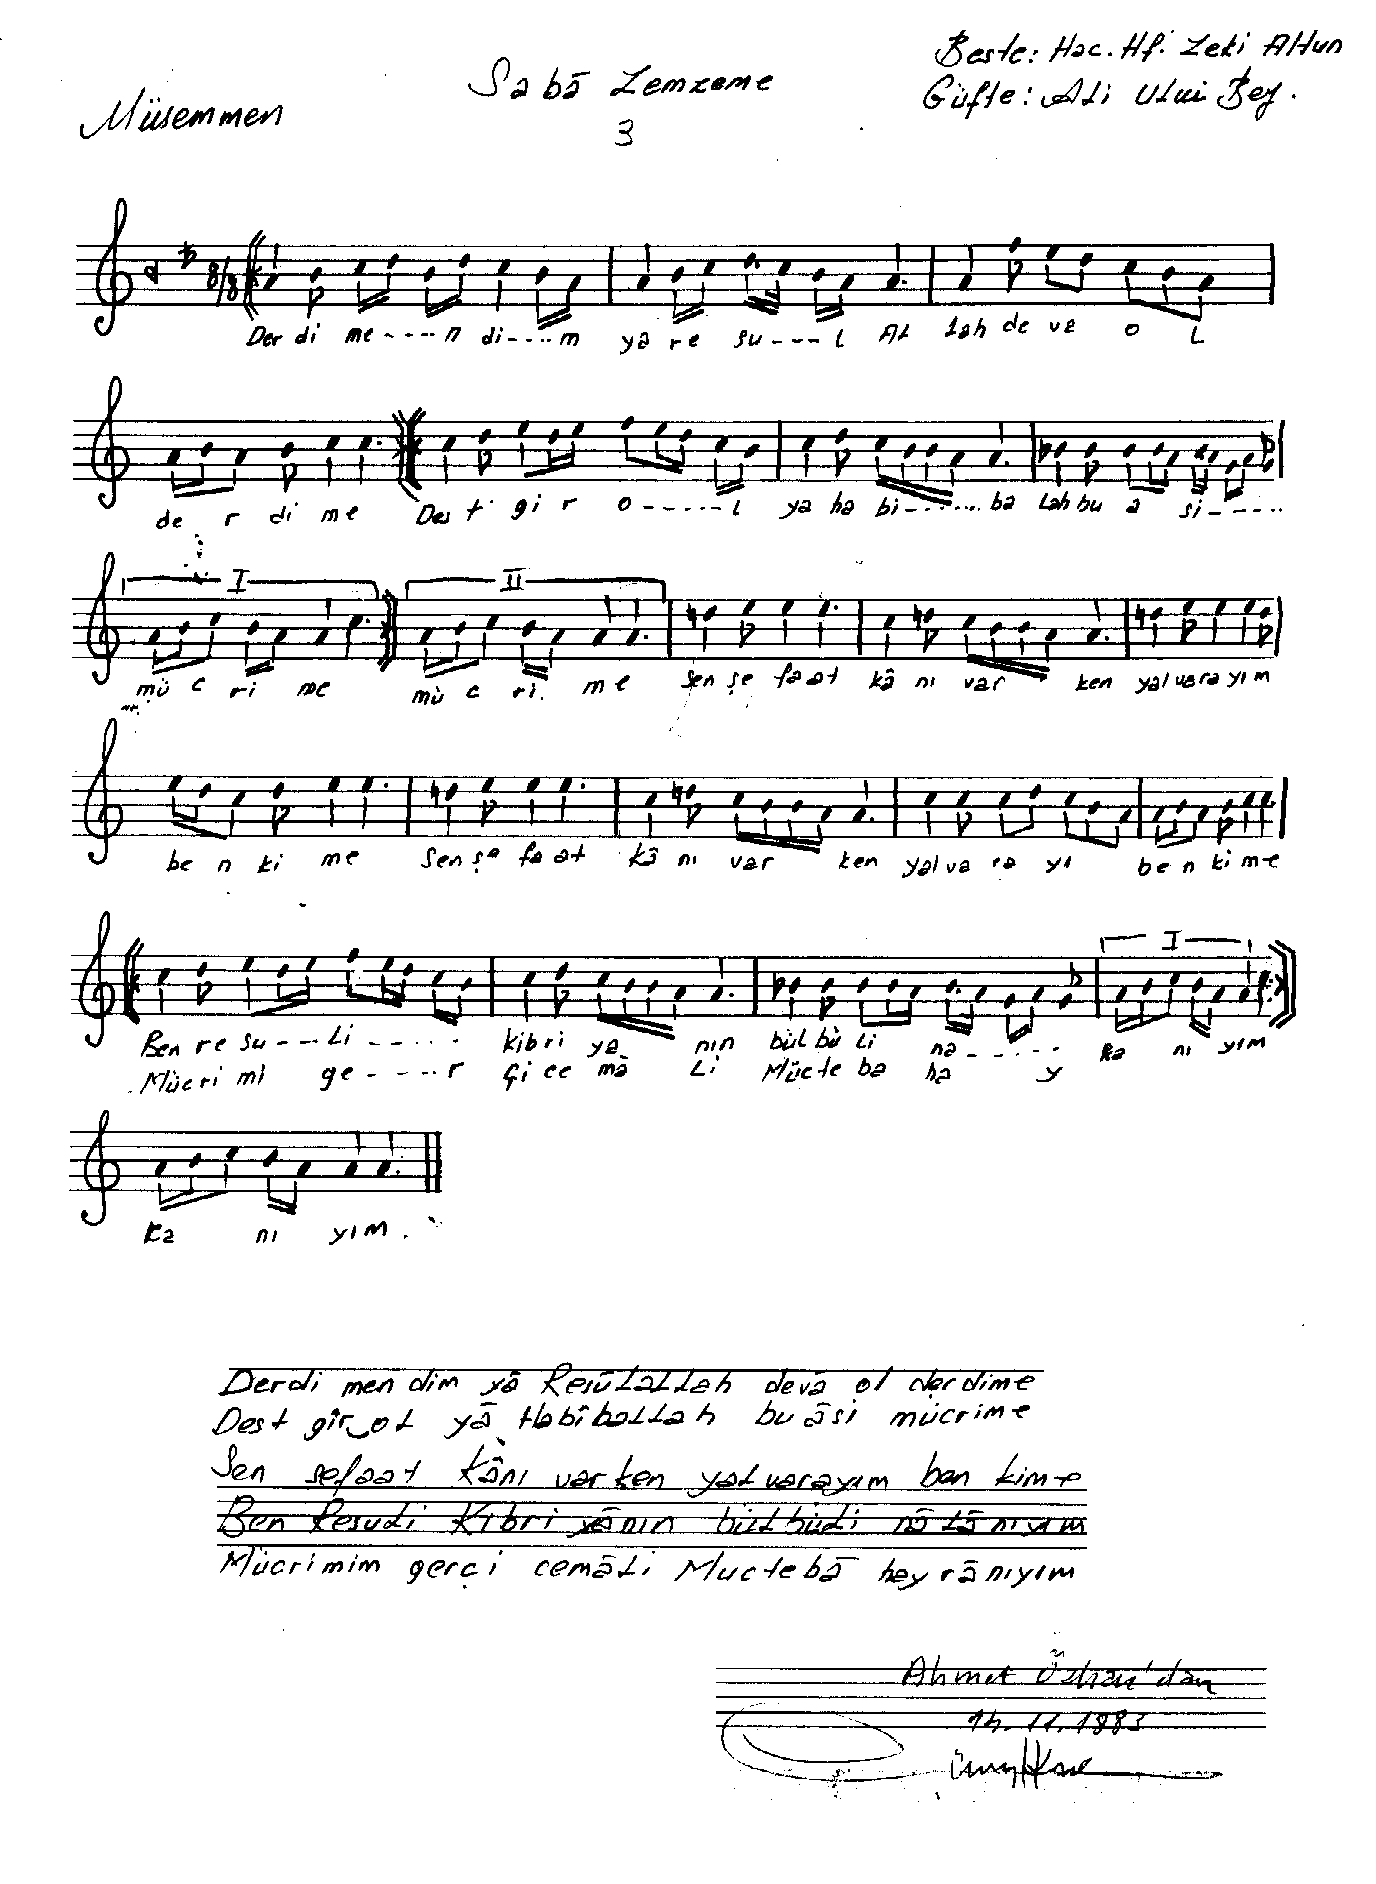 Beste: Hac. Hf. Zeki Altun
Sabā Zemzeme
Güfte: Ali Ulvi Bey.
Müsemmen
3
8/8
Der di me----n di----m ya re su---l Al lah de va o l
de r di me Des t gi r o-----l ya ha bi------ ba Lah bu a si-----
I II
mü c ri me mü c ri. me Sen şe faat kâ nı var ken yalvarayım
be n ki me Sen şe faat kâ nı var ken yalva ra yı ben kime
I
Ben re su---Li----- kibri ya nın bül bü li na----- ka nı yım
Mücri mi ge----r çi ce mā Li Mücte ba ha y
ka nı yım.
Derdi men dim yā Resūlallah devā ol derdime
Dest gîr ol yā Habîballah bu āsi mücrime
Sen sefaat kânı varken yalvarayım ben kime
Ben Resuli Kibri yānın bülbüli nālānıyım
Mücrimim gerçi cemāli Muctebā hayrānıyım
Ahmet Özhan'dan